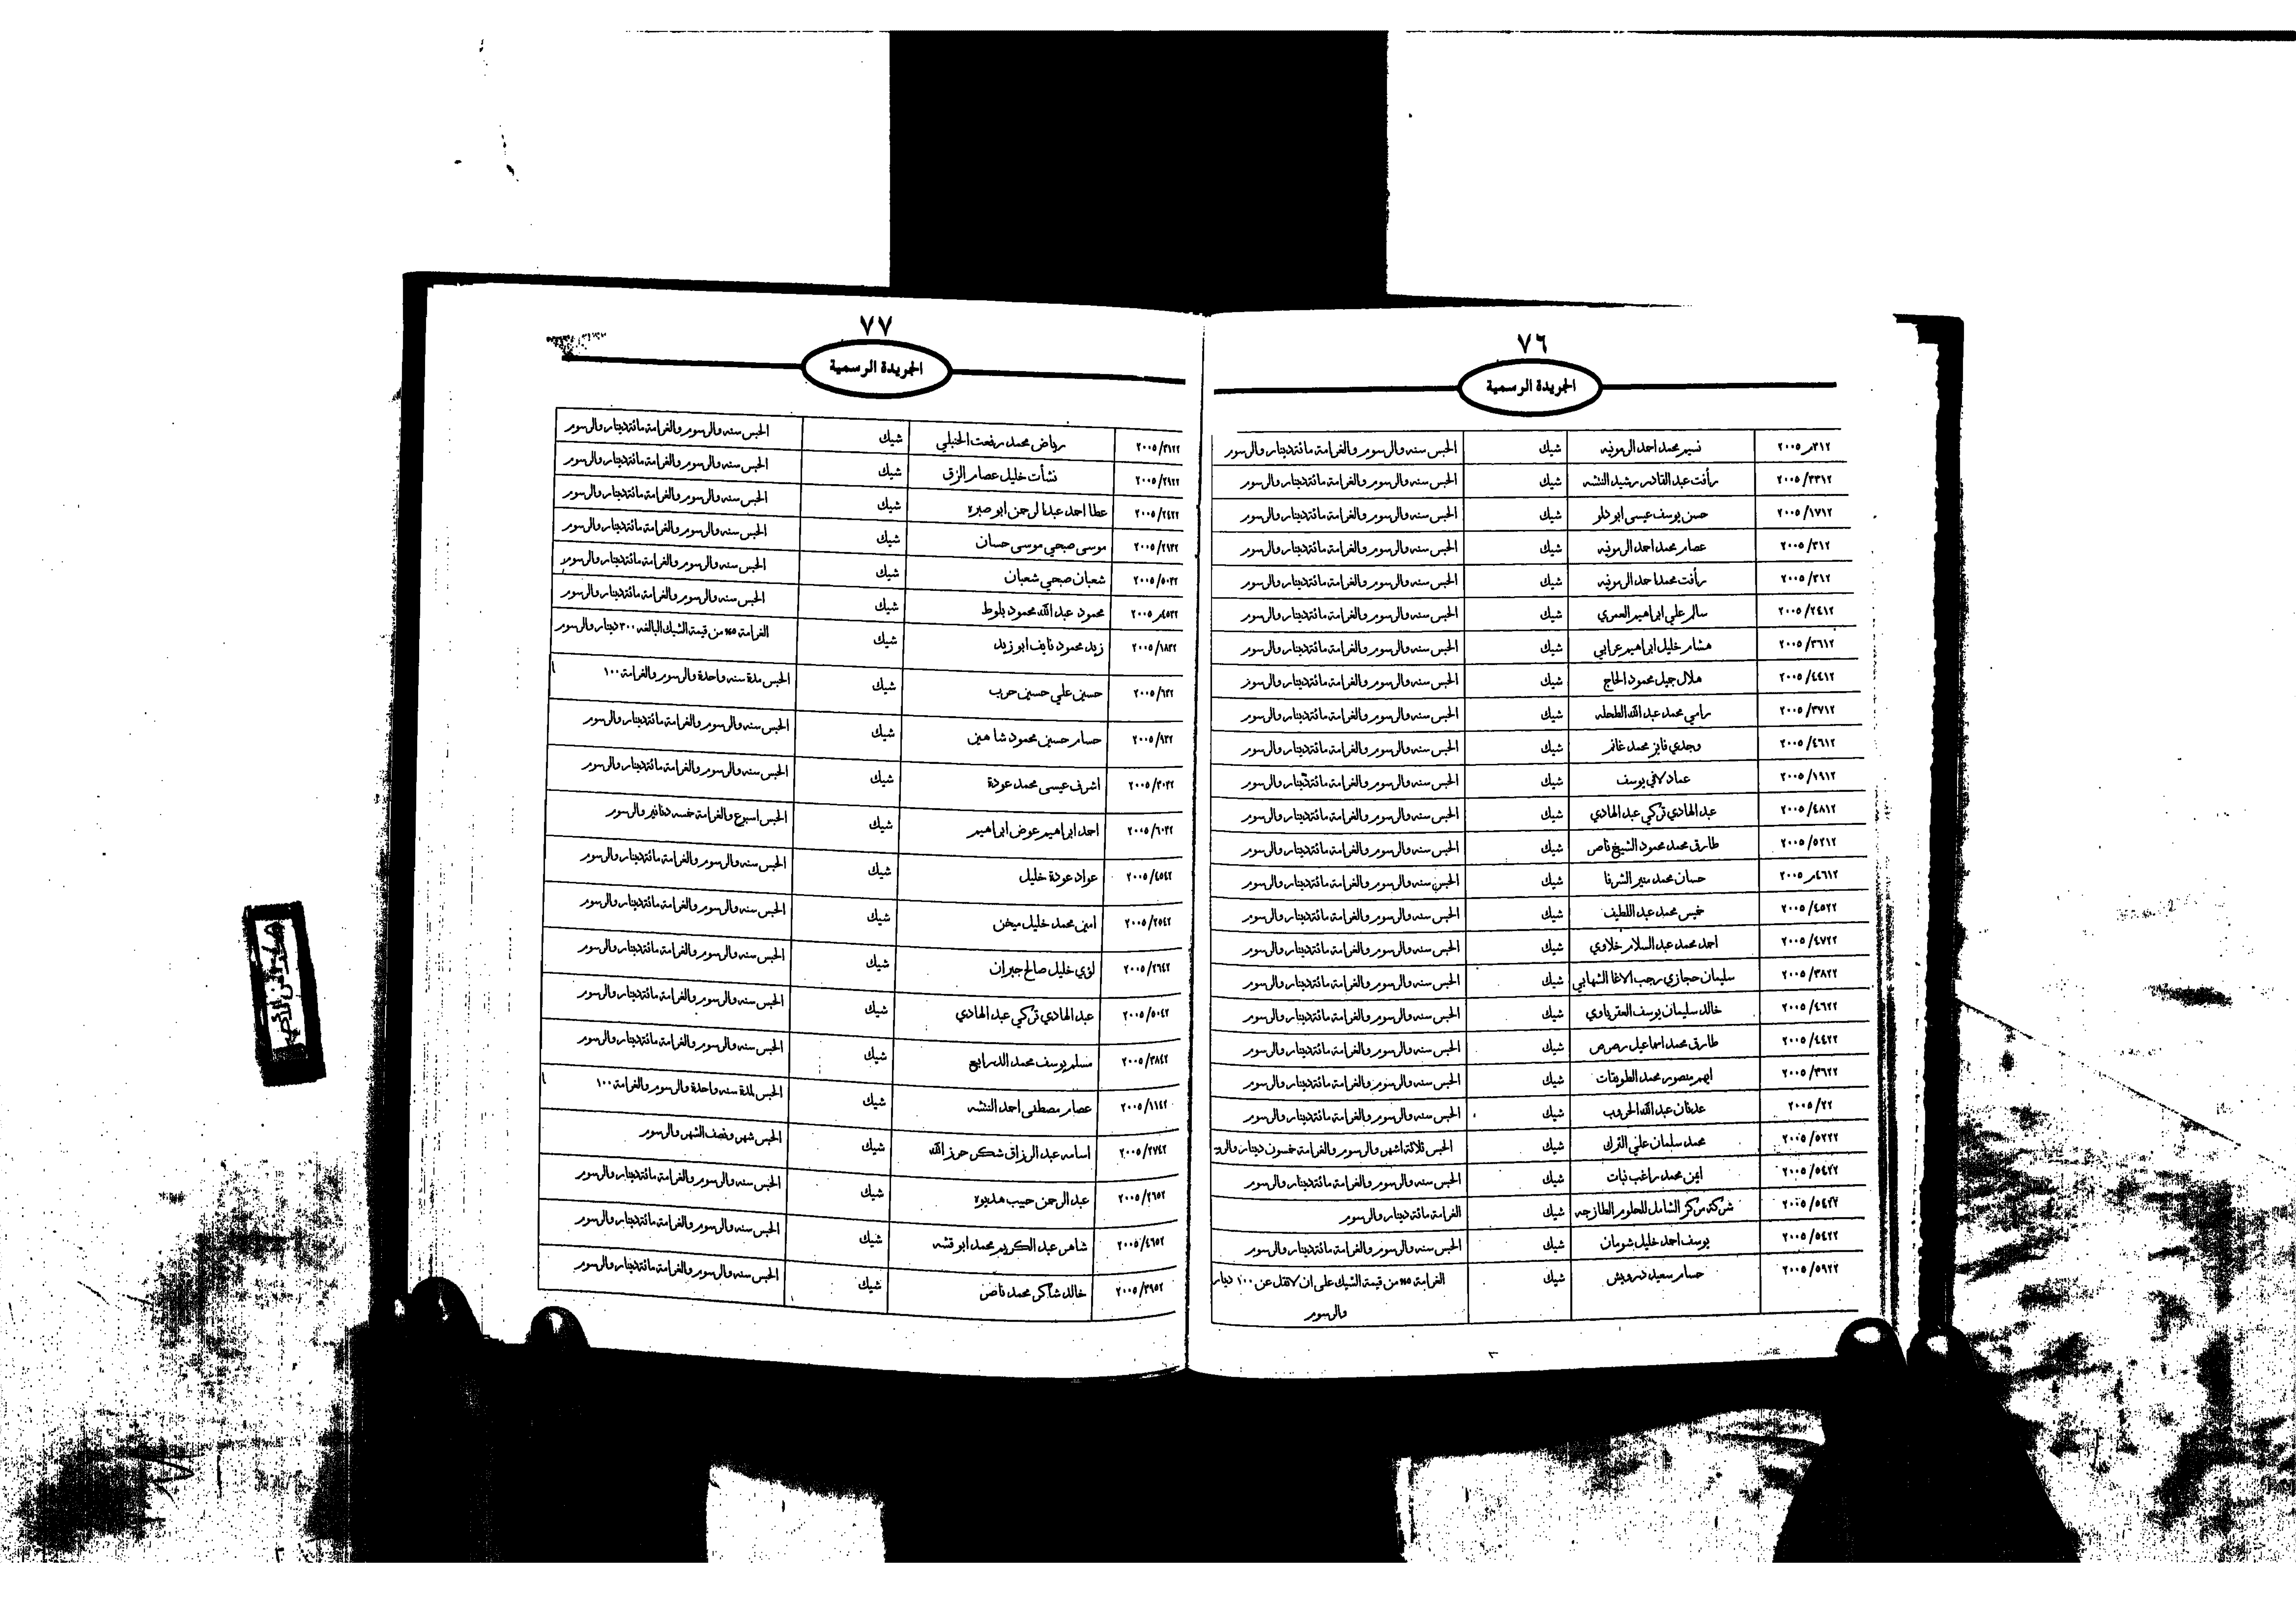 ٧٦
الجريدة الرسمية
٢٠٠٥/٣١٢م نسيم محمد احمد الرمونيه شيك الحبس سنه والرسوم والغرامة مائة دينار والرسوم
٢٠٠٥/٣٣١٢ رأفت عبدالقادر رشيد النتشه شيك الحبس سنه والرسوم والغرامة مائة دينار والرسوم
٢٠٠٥/١٧١٢ حسن يوسف عيسى ابو دلو شيك الحبس سنه والرسوم والغرامة مائة دينار والرسوم
٢٠٠٥/٣١٢ عصام محمد احمد الرمونيه شيك الحبس سنه والرسوم والغرامة مائة دينار والرسوم
٢٠٠٥/٣١٢ رأفت محمد احمد الرمونيه شيك الحبس سنه والرسوم والغرامة مائة دينار والرسوم
٢٠٠٥/٢٤١٢ سالم علي ابراهيم العمري شيك الحبس سنه والرسوم والغرامة مائة دينار والرسوم
٢٠٠٥/٣٦١٢ هشام خليل ابراهيم عرابي شيك الحبس سنه والرسوم والغرامة مائة دينار والرسوم
٢٠٠٥/٤٤١٢ هلال جميل محمود الحاج شيك الحبس سنه والرسوم والغرامة مائة دينار والرسوم
٢٠٠٥/٣٧١٢ رامي محمد عبدالله الطحله شيك الحبس سنه والرسوم والغرامة مائة دينار والرسوم
٢٠٠٥/٤٦١٢ وجدي فايز محمد غانم شيك الحبس سنه والرسوم والغرامة مائة دينار والرسوم
٢٠٠٥/١٩١٢ عماد لافي يوسف شيك الحبس سنه والرسوم والغرامة مائة دينار والرسوم
٢٠٠٥/٤٨١٢ عبدالهادي تركي عبدالهادي شيك الحبس سنه والرسوم والغرامة مائة دينار والرسوم
٢٠٠٥/٥٢١٢ طارق محمد محمود الشيخ ناصر شيك الحبس سنه والرسوم والغرامة مائة دينار والرسوم
٢٠٠٥/٤٦١٢م حسان محمد منير الشرفا شيك الحبس سنه والرسوم والغرامة مائة دينار والرسوم
٢٠٠٥/٤٥٢٢ خميس محمد عبداللطيف شيك الحبس سنه والرسوم والغرامة مائة دينار والرسوم
٢٠٠٥/٤٧٢٢ احمد محمد عبدالسلام خلاوي شيك الحبس سنه والرسوم والغرامة مائة دينار والرسوم
٢٠٠٥/٣٨٢٢ سليمان حجازي رجب الاغا الشهابي شيك الحبس سنه والرسوم والغرامة مائة دينار والرسوم
٢٠٠٥/٤٦٢٢ خالد سليمان يوسف العقرباوي شيك الحبس سنه والرسوم والغرامة مائة دينار والرسوم
٢٠٠٥/٤٤٢٢ طارق محمد اسماعيل رصرص شيك الحبس سنه والرسوم والغرامة مائة دينار والرسوم
٢٠٠٥/٣٦٢٢ ايهم منصور محمد الطويقات شيك الحبس سنه والرسوم والغرامة مائة دينار والرسوم
٢٠٠٥/٢٢ عدنان عبدالله الحروب شيك الحبس سنه والرسوم والغرامة مائة دينار والرسوم
٢٠٠٥/٥٢٢٢ محمد سلمان علي الترك شيك الحبس ثلاثة اشهر والرسوم والغرامة خمسون دينار
٢٠٠٥/٥٤٢٢ ايمن محمد راغب نبات شيك الحبس سنه والرسوم والغرامة مائة دينار والرسوم
٢٠٠٥/٥٤٢٢ شركة مركز الشامل للحلوم الطازجه شيك الغرامة مائة دينار والرسوم
٢٠٠٥/٥٤٢٢ يوسف احمد خليل شومان شيك الحبس سنه والرسوم والغرامة مائة دينار والرسوم
٢٠٠٥/٥٩٢٢ حسام سعيد درويش شيك الغرامة ٥% من قيمة الشيك على ان لاتقل عن ١٠٠ دينار
والرسوم
٧٧
الجريدة الرسمية
٢٠٠٥/٣١٢٢ رياض محمد رفعت الحنبلي شيك الحبس سنه والرسوم والغرامة مائة دينار والرسوم
٢٠٠٥/٢٩٢٢ نشأت خليل عصام الزق شيك الحبس سنه والرسوم والغرامة مائة دينار والرسوم
٢٠٠٥/٢٤٢٢ عطا احمد عبدالرحمن ابو صبره شيك الحبس سنه والرسوم والغرامة مائة دينار والرسوم
٢٠٠٥/٢٩٣٢ موسى صبحي موسى حسان شيك الحبس سنه والرسوم والغرامة مائة دينار والرسوم
٢٠٠٥/٥٠٣٢ شعبان صبحي شعبان شيك الحبس سنه والرسوم والغرامة مائة دينار والرسوم
٢٠٠٥/٤٥٣٢م محمود عبدالله محمود بلوط شيك الحبس سنه والرسوم والغرامة مائة دينار والرسوم
٢٠٠٥/١٨٣٢ زيد محمود نايف ابو زيد شيك الغرامة ٥% من قيمة الشيك البالغه ٣٠٠ دينار والرسوم
٢٠٠٥/٦٣٢ حسين علي حسين حرب شيك الحبس مدة سنه واحدة والرسوم والغرامة ١٠٠
٢٠٠٥/٩٣٢ حسام حسين محمود شاهين شيك الحبس سنه والرسوم والغرامة مائة دينار والرسوم
٢٠٠٥/٣٠٣٢ اشرف عيسى محمد عودة شيك الحبس سنه والرسوم والغرامة مائة دينار والرسوم
٢٠٠٥/٦٠٣٢ احمد ابراهيم عوض ابراهيم شيك الحبس اسبوع والغرامة خمسه دنانير والرسوم
٢٠٠٥/٤٥٤٢ عواد عودة خليل شيك الحبس سنه والرسوم والغرامة مائة دينار والرسوم
٢٠٠٥/٢٥٤٢ امين محمد خليل شيك الحبس سنه والرسوم والغرامة مائة دينار والرسوم
٢٠٠٥/٢٦٤٢ لؤي خليل صالح جبران شيك الحبس سنه والرسوم والغرامة مائة دينار والرسوم
٢٠٠٥/٥٠٤٢ عبدالهادي تركي عبدالهادي شيك الحبس سنه والرسوم والغرامة مائة دينار والرسوم
٢٠٠٥/٣٨٤٢ مسلم يوسف محمد الدرابيع شيك الحبس سنه والرسوم والغرامة مائة دينار والرسوم
٢٠٠٥/١١٤٢ عصام مصطفى احمد النتشه شيك الحبس لمدة سنه واحدة والرسوم والغرامة ١٠٠
٢٠٠٥/٢٧٤٢ اسامه عبدالرزاق شكر حرزالله شيك الحبس شهر ونصف الشهر والرسوم
٢٠٠٥/٢٦٥٢ عبدالرحمن حبيب هديوه شيك الحبس سنه والرسوم والغرامة مائة دينار والرسوم
٢٠٠٥/٤٦٥٢ شاهر عبدالكريم محمد ابو قشه شيك الحبس سنه والرسوم والغرامة مائة دينار والرسوم
٢٠٠٥/٣٩٥٢ خالد شاكر محمد ناصر شيك الحبس سنه والرسوم والغرامة مائة دينار والرسوم